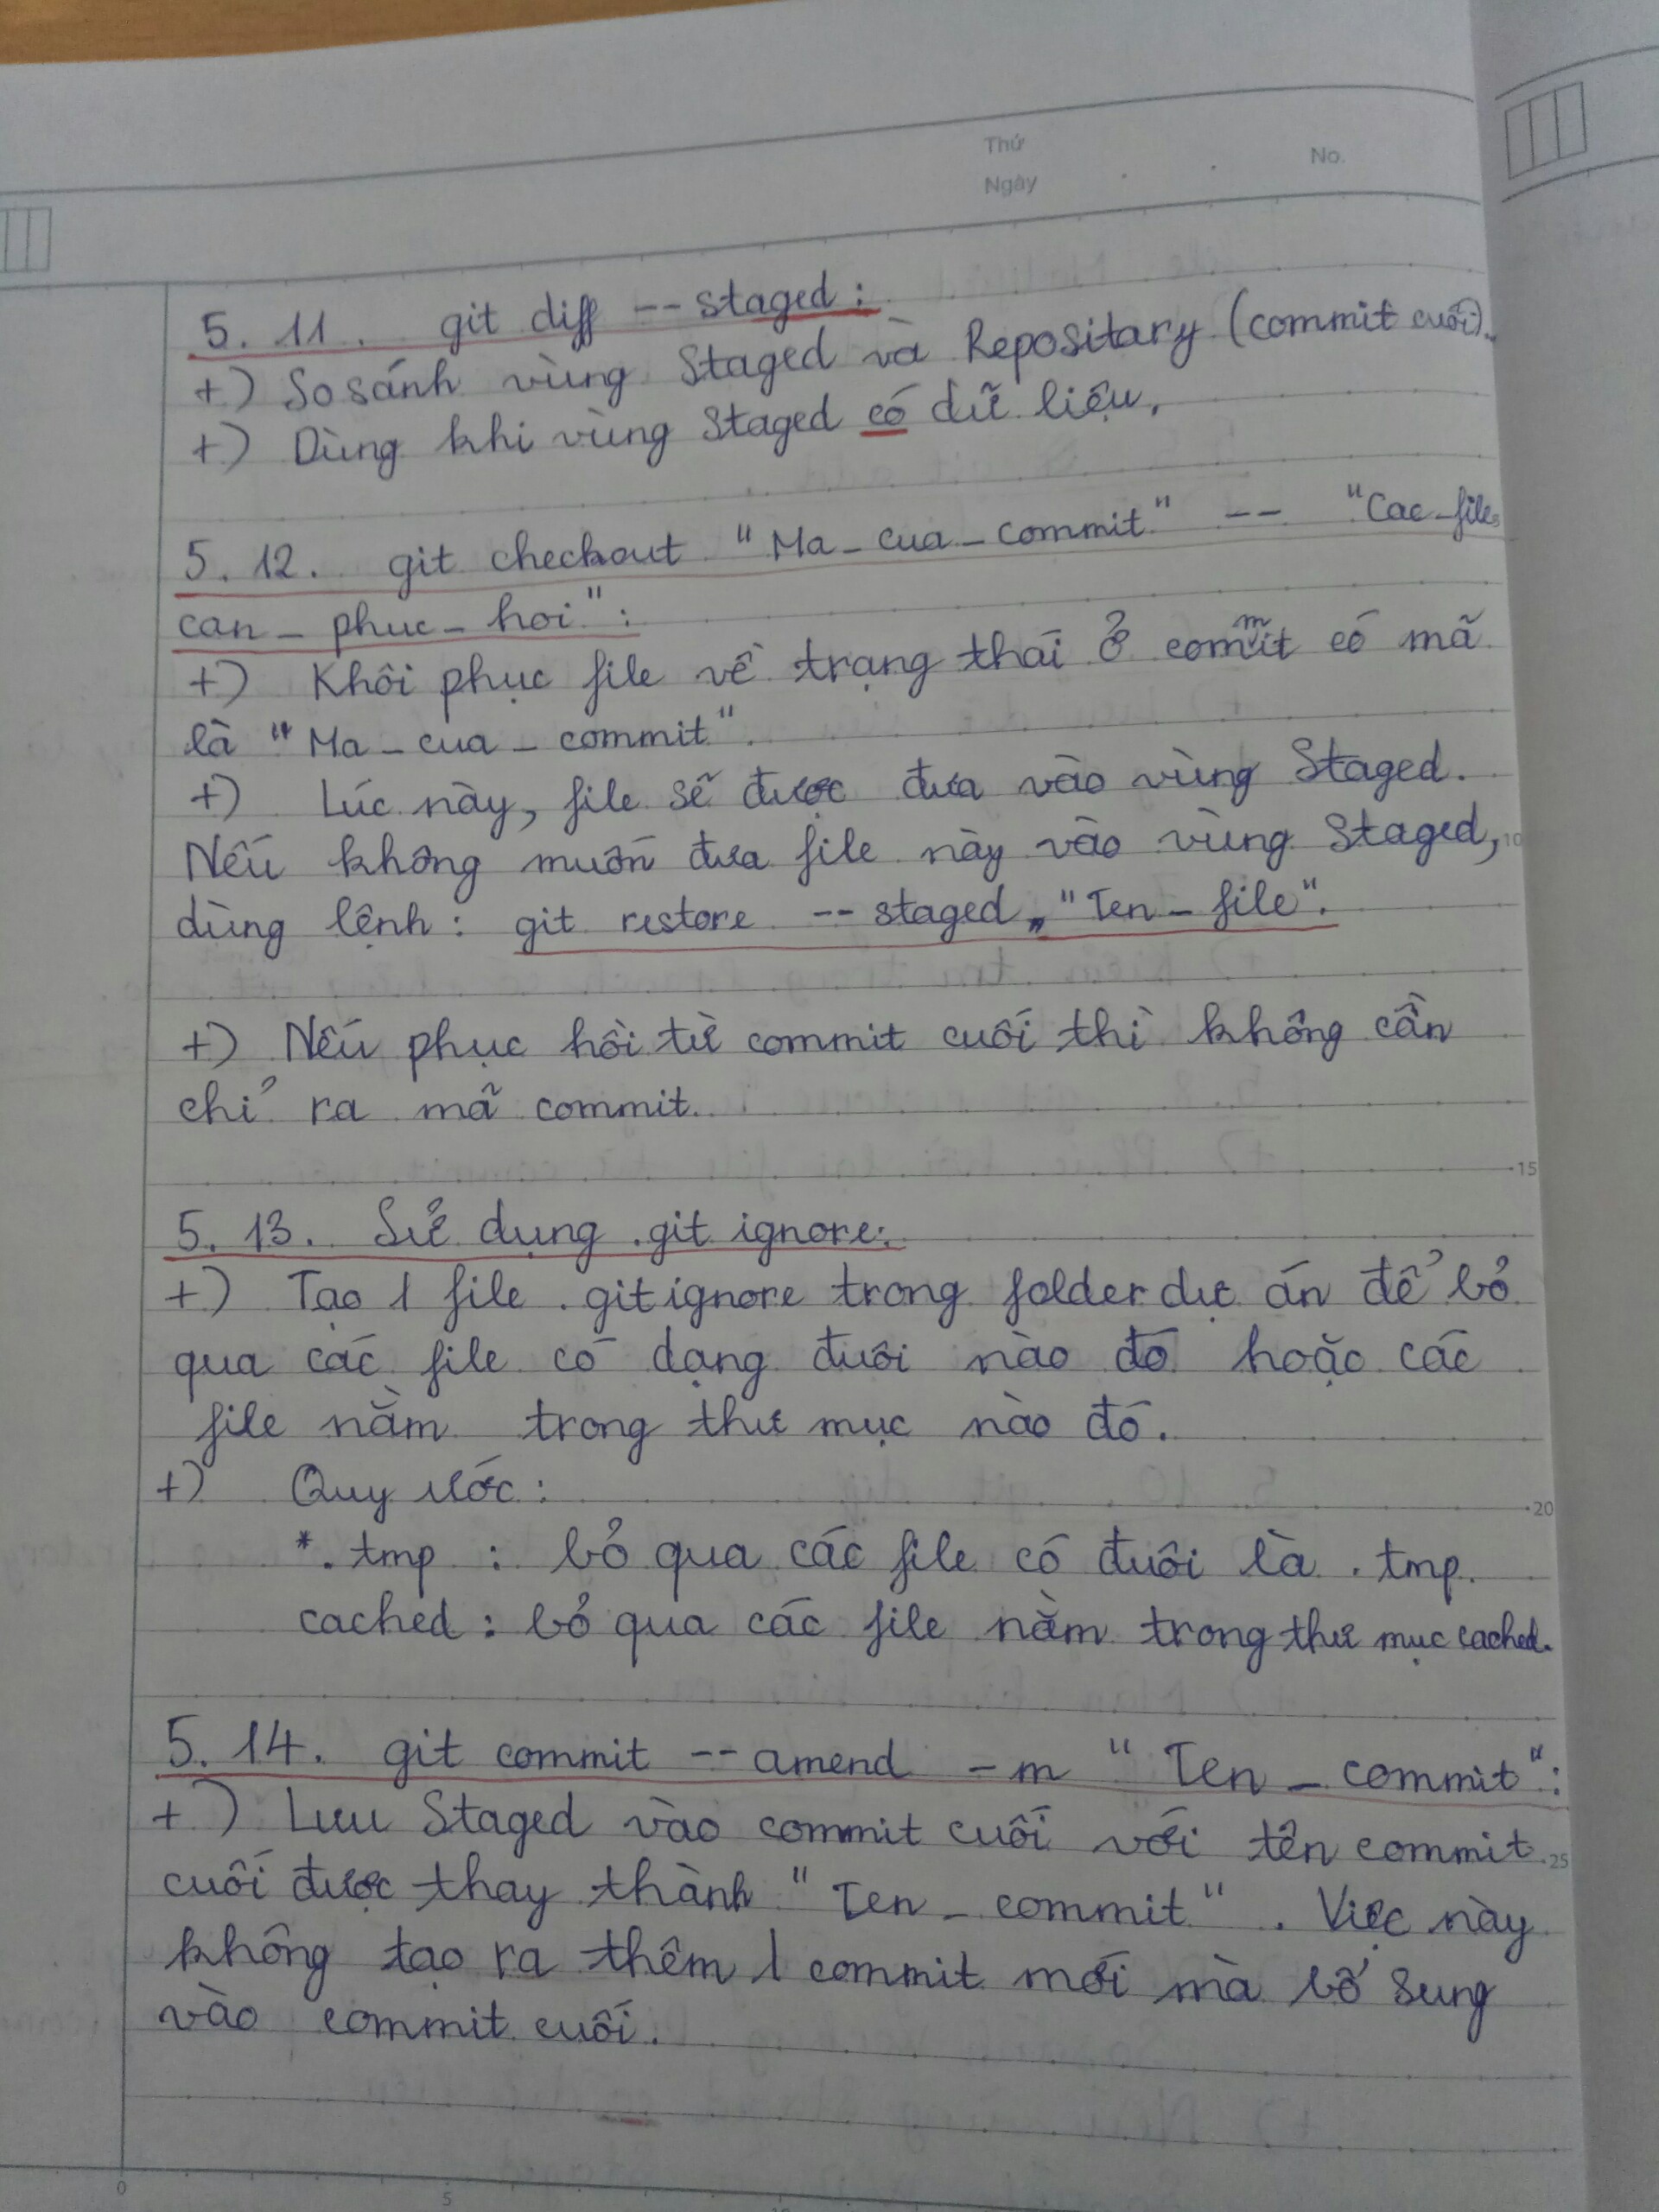 Thứ
Ngày
No.
5. 11. git diff --staged:
+) So sánh vùng Staged và Repositary (commit cuối).
+) Dùng khi vùng Staged có dữ liệu.
5. 12. git checkout "Ma_cua_commit" -- "Cac_file
can_phuc_hoi":
+) Khôi phục file về trạng thái ở commit có mã
là "Ma_cua_commit".
+) Lúc này, file sẽ được đưa vào vùng Staged.
Nếu không muốn đưa file này vào vùng Staged,
10
dùng lệnh: git restore --staged "Ten_file".
+) Nếu phục hồi từ commit cuối thì không cần
chỉ ra mã commit.
15
5. 13. Sử dụng .git ignore:
+) Tạo 1 file .gitignore trong folder dự án để bỏ
qua các file có dạng đuôi nào đó hoặc các
file nằm trong thư mục nào đó.
+) Quy ước:
20
*.tmp : bỏ qua các file có đuôi là .tmp.
cached : bỏ qua các file nằm trong thư mục cached.
5. 14. git commit --amend -m "Ten_commit":
+) Lưu Staged vào commit cuối với tên commit
25
cuối được thay thành "Ten_commit". Việc này
không tạo ra thêm 1 commit mới mà bổ sung
vào commit cuối.
0
5
10